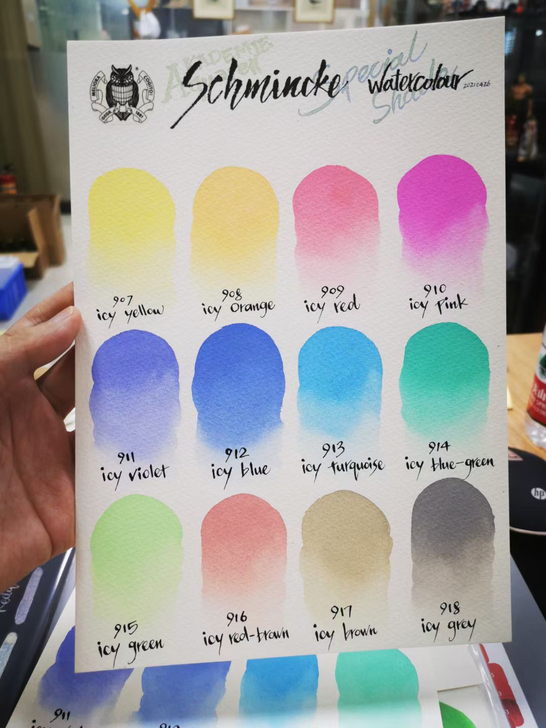 Schmincke Watercolour 20210426
Special
907
icy yellow
908
icy orange
909
icy red
910
icy pink
911
icy violet
912
icy blue
913
icy turquoise
914
icy blue-green
915
icy green
916
icy red-brown
917
icy brown
918
icy grey
911
hp